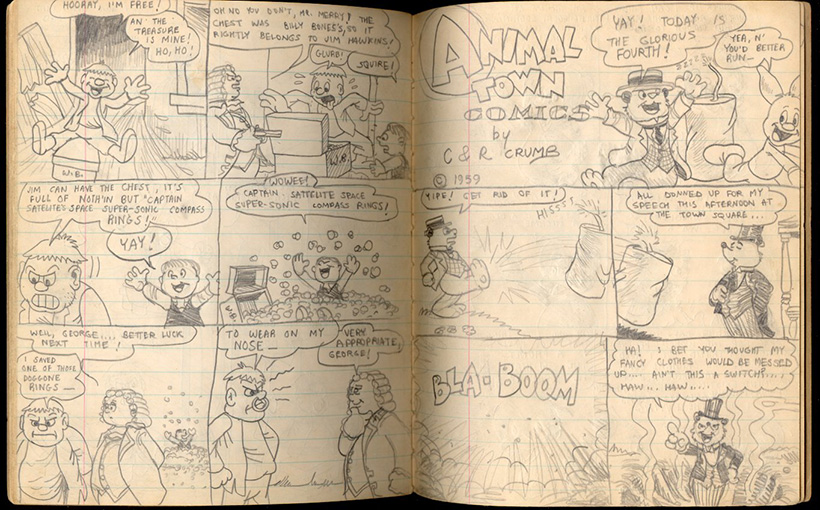 HOORAY, I'M FREE!
AN' THE
TREASURE
IS MINE!
HO, HO!
OH NO YOU DON'T, MR. MERRY! THE
CHEST WAS BILLY BONES'S, SO IT
RIGHTLY BELONGS TO JIM HAWKINS!
GLURB!
SQUIRE!
W.B.
W.B.
JIM CAN HAVE THE CHEST, IT'S
FULL OF NOTH'IN BUT "CAPTAIN
SATELITE'S SPACE SUPER-SONIC COMPASS
RINGS!"
YAY!
WOWEE!
CAPTAIN SATTELITE SPACE
SUPER-SONIC COMPASS RINGS!
W.B.
WELL, GEORGE... BETTER LUCK
NEXT TIME!
I SAVED
ONE OF THOSE
DOGGONE
RINGS—
TO WEAR ON MY
NOSE—
VERY
APPROPRIATE,
GEORGE!
ANIMAL
TOWN
COMICS
by
C & R CRUMB
© 1959
YAY! TODAY IS
THE GLORIOUS
FOURTH!
YEA, N'
YOU'D BETTER
RUN—
ZZZZZ
YIPE! GET RID OF IT!
HISSSST
ALL DONNED UP FOR MY
SPEECH THIS AFTERNOON AT
THE TOWN SQUARE...
BLA-BOOM
HA! I BET YOU THOUGHT MY
FANCY CLOTHES WOULD BE MESSED
UP.... AIN'T THIS A SWITCH?.....
HAW... HAW....